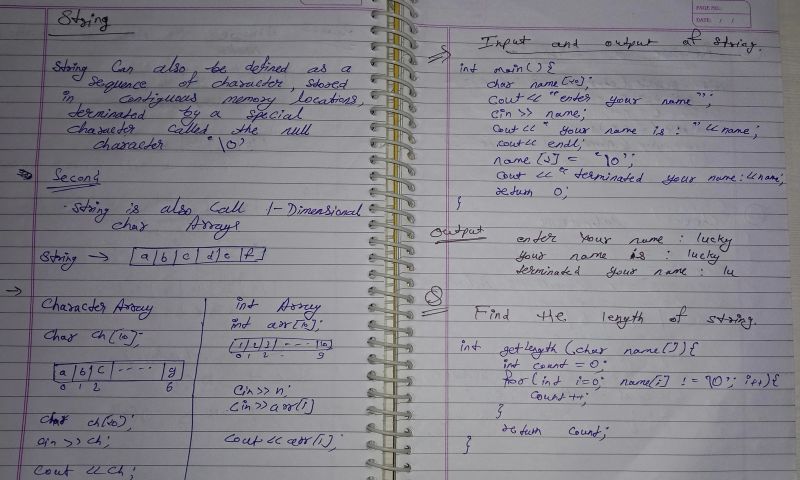 String
String Can also be defined as a
sequence of character, stored
in contiguous memory locations,
terminated by a special
character called the null
character '\0'
Second
· String is also Call 1-Dimensional
char Arrays
String → a b c d e f
Character Array
Char ch[10];
a b c ---- g
0 1 2 6
char ch[20];
cin >> ch;
cout << ch;
int Array
int arr[10];
1 2 3 ---- 10
0 1 2 9
cin >> n;
cin >> arr[i]
cout << arr[i];
PAGE NO.:
DATE: / /
Input and output of string.
int main() {
char name[20];
cout << "enter your name";
cin >> name;
cout << "your name is : " << name;
cout << endl;
name[2] = '\0';
cout << "terminated your name: << name;
return 0;
}
Output
enter your name : lucky
your name is : lucky
terminated your name : lu
Find the length of string.
int getlength (char name[]) {
int count = 0;
for (int i=0; name[i] != '\0'; i++) {
count++;
}
return count;
}